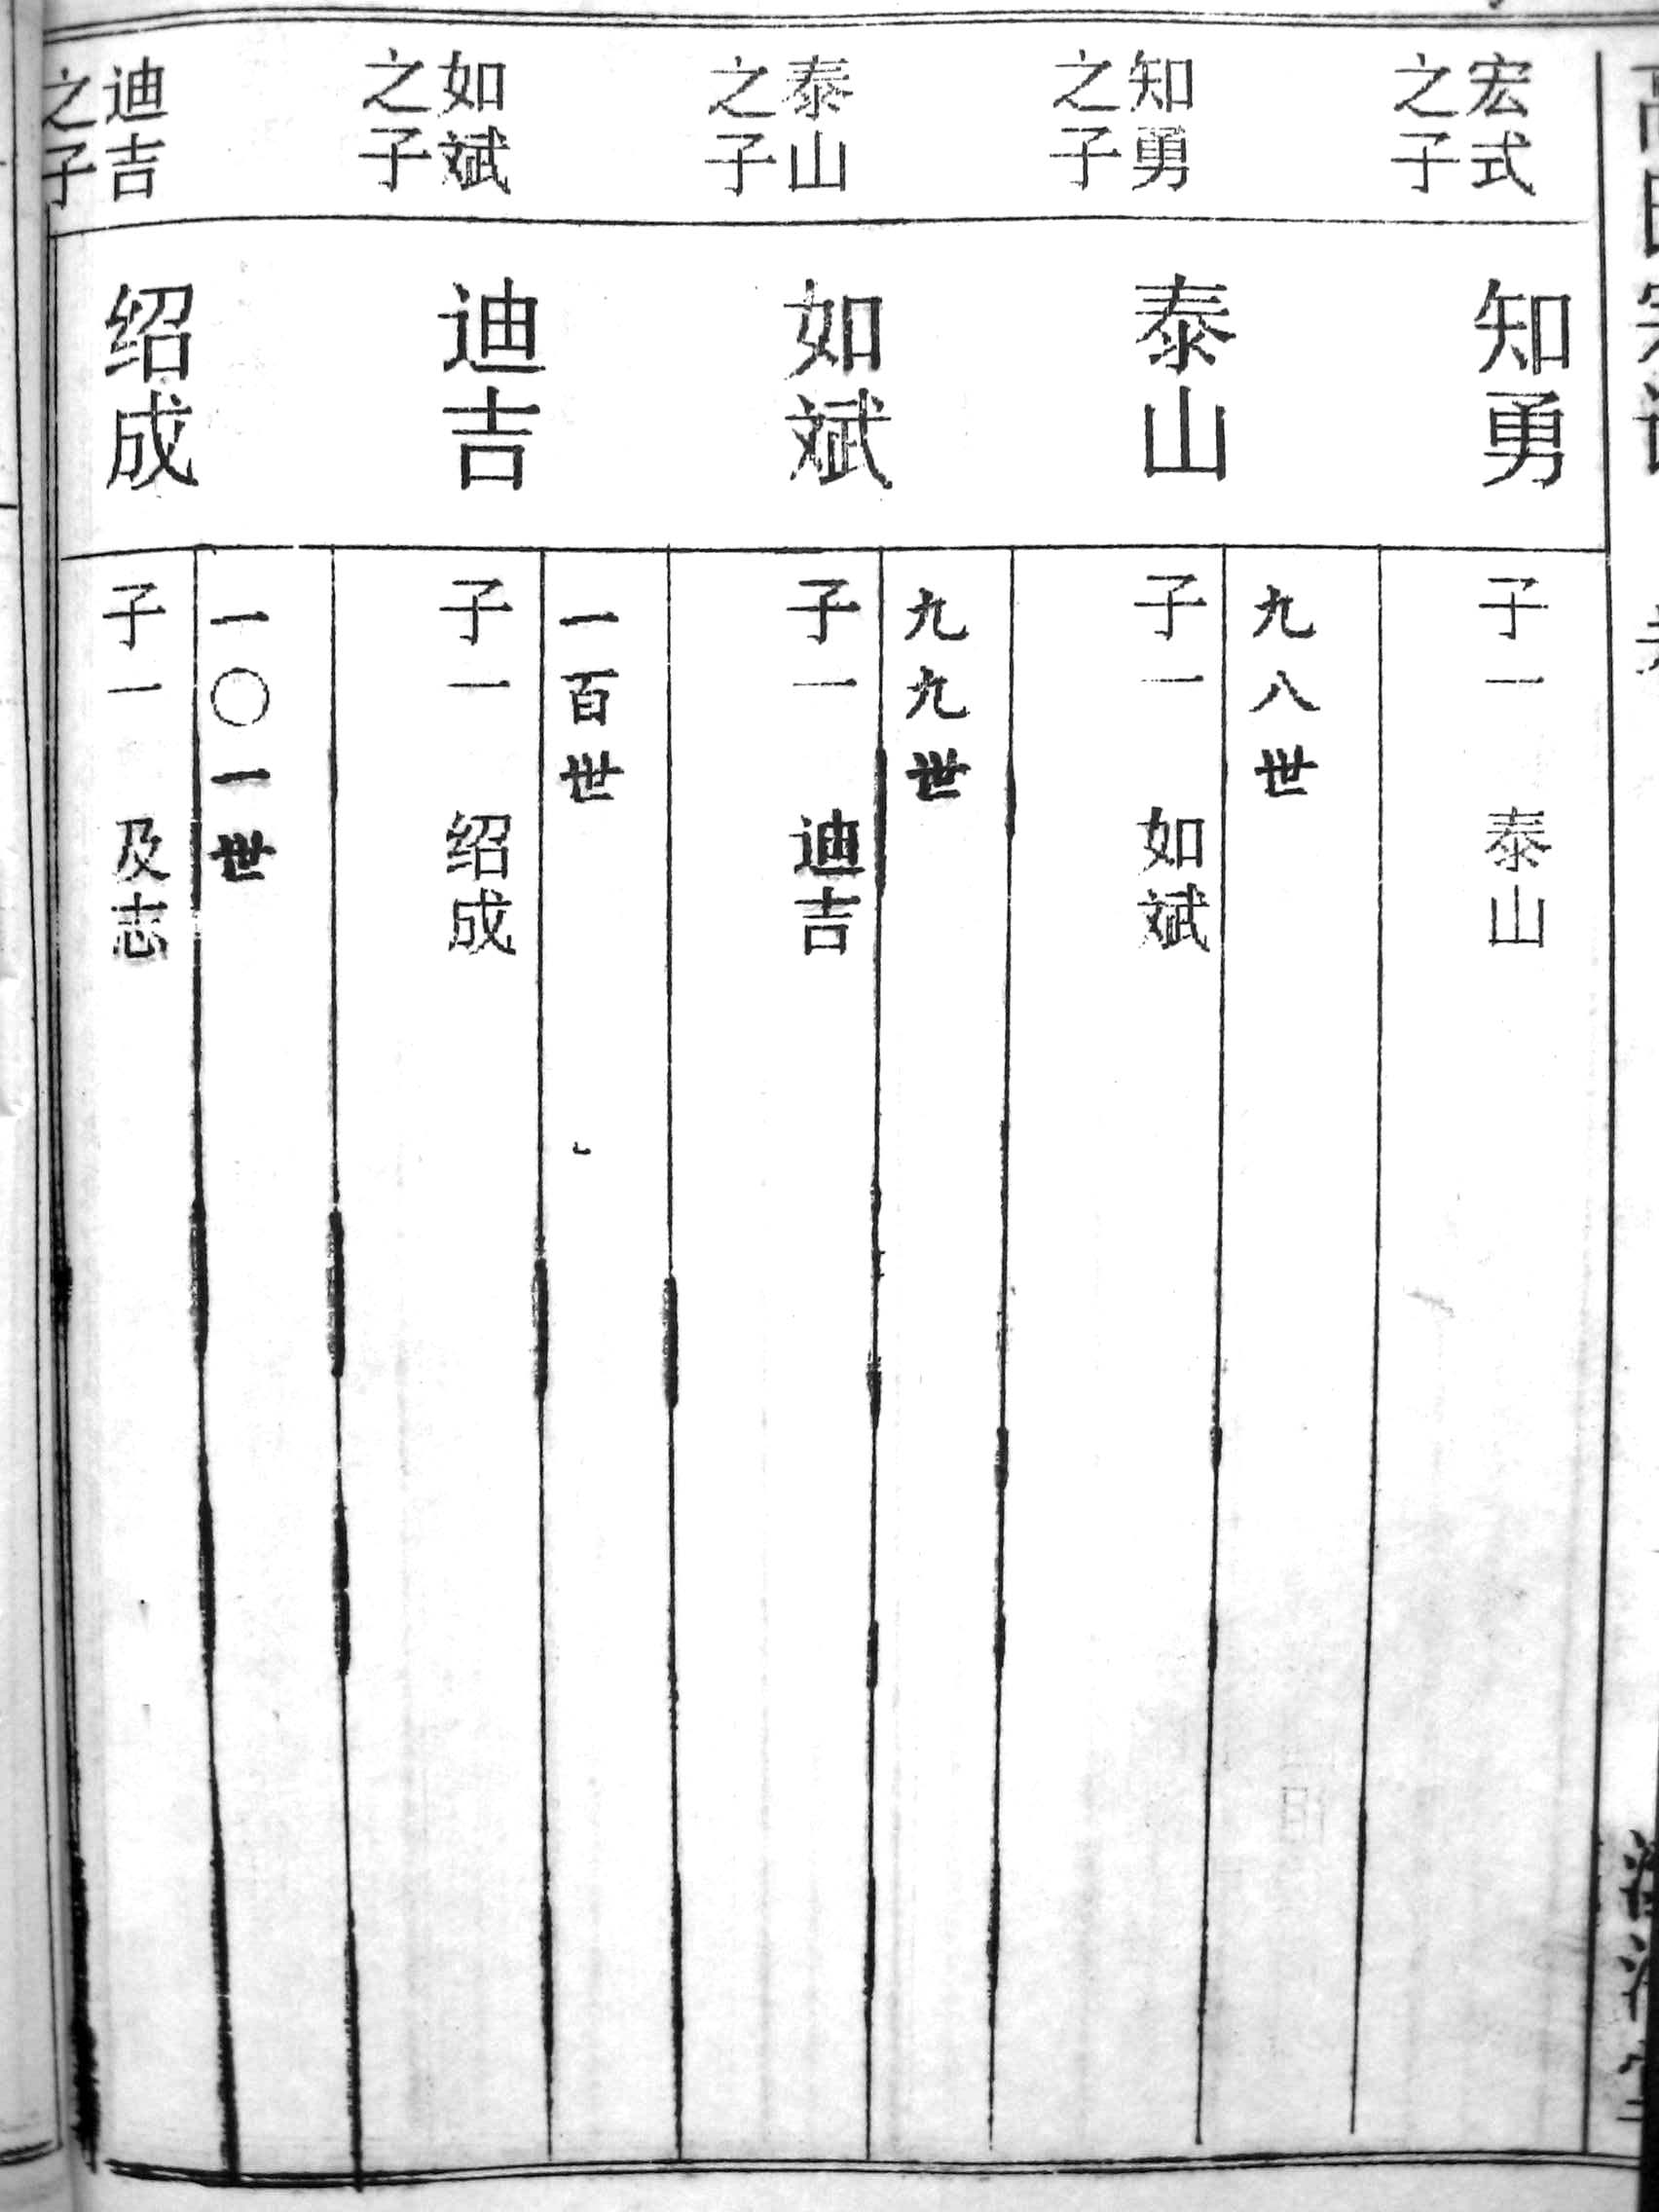 宏式
之子
知勇
子一 泰山
九八世
知勇
之子
泰山
子一 如斌
九九世
泰山
之子
如斌
子一 迪吉
一百世
如斌
之子
迪吉
子一 绍成
一〇一世
迪吉
之子
绍成
子一 及志